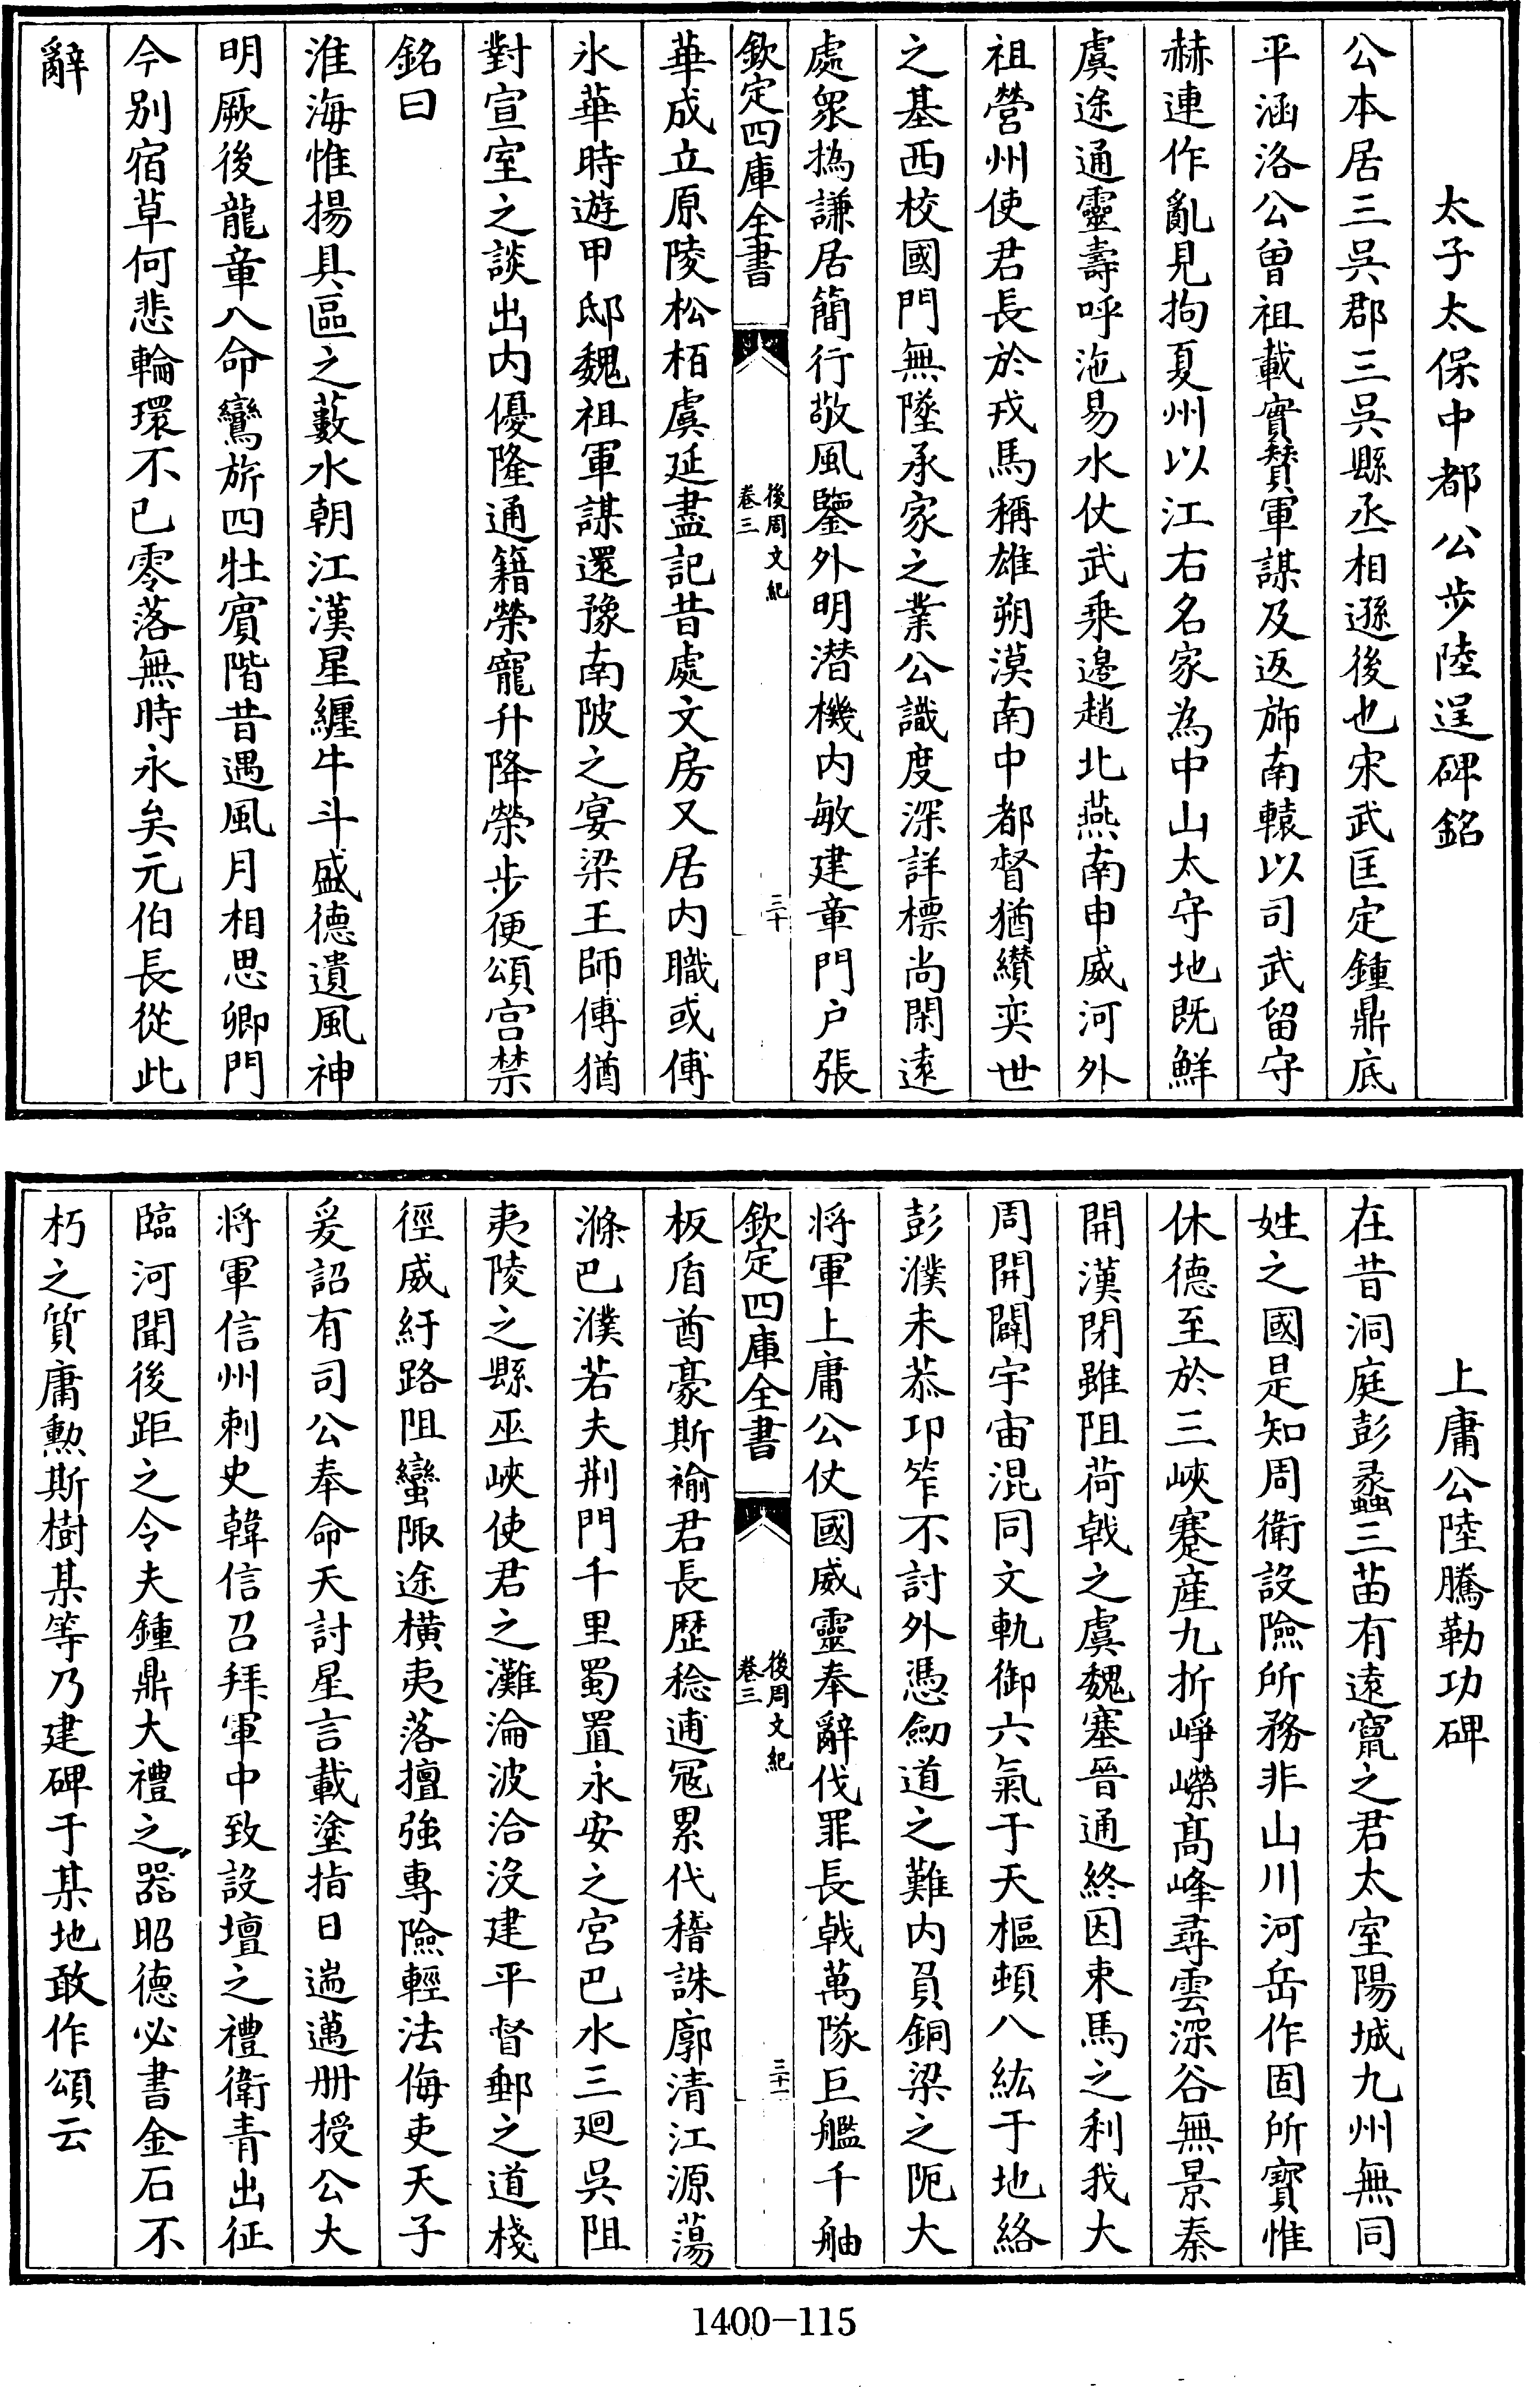 太子太保中都公步陸逞碑銘
公本居三吳郡三吳縣丞相遜後也宋武匡定鍾鼎底
平涵洛公曾祖載實賛軍謀及返斾南轅以司武留守
赫連作亂見拘夏州以江右名家為中山太守地既鮮
虞途通靈壽呼沲易水仗武乘邊趙北燕南申威河外
祖營州使君長於戎馬稱雄朔漠南中都督猶纉奕世
之基西校國門無墜承家之業公識度深詳標尚閑逺
處衆撝謙居簡行敬風鑒外明潜機内敏建章門户張
欽定四庫全書
後周文紀
卷三
三十
華成立原陵松栢虞延盡記昔處文房又居内職或傅
氷華時遊甲邸魏祖軍謀還豫南陂之宴梁王師傅猶
對宣室之談出内優隆通籍榮寵升降榮步便頌宫禁
銘曰
淮海惟揚具區之藪水朝江漢星纏牛斗盛德遺風神
明厥後龍章八命鸞旂四牡賔階昔遇風月相思卿門
今别宿草何悲輪環不已零落無時永矣元伯長從此
辭
上庸公陸騰勒功碑
在昔洞庭彭蠡三苗有逺竄之君太室陽城九州無同
姓之國是知周衛設險所務非山川河岳作固所寳惟
休德至於三峽蹇産九折崢嶸髙峰尋雲深谷無景秦
開漢閉雖阻荷戟之虞魏塞晉通終因束馬之利我大
周開闢宇宙混同文軌御六氣于天樞頓八紘于地絡
彭濮未恭卭笮不討外憑劒道之難内負銅梁之阨大
將軍上庸公仗國威靈奉辭伐罪長戟萬隊巨艦千舳
欽定四庫全書
後周文紀
卷三
三十一
板盾酋豪斯褕君長歴稔逋寇累代稽誅廓清江源蕩
滌巴濮若夫荆門千里蜀置永安之宫巴水三廻吳阻
夷陵之縣巫峽使君之灘淪波洽没建平督郵之道棧
徑威紆路阻蠻陬途横夷落擅強專險輕法侮吏天子
爰詔有司公奉命天討星言載塗指日遄邁册授公大
將軍信州刺史韓信召拜軍中致設壇之禮衛青出征
臨河聞後距之令夫鍾鼎大禮之器昭德必書金石不
朽之質庸勲斯樹某等乃建碑于某地敢作頌云
1400-115